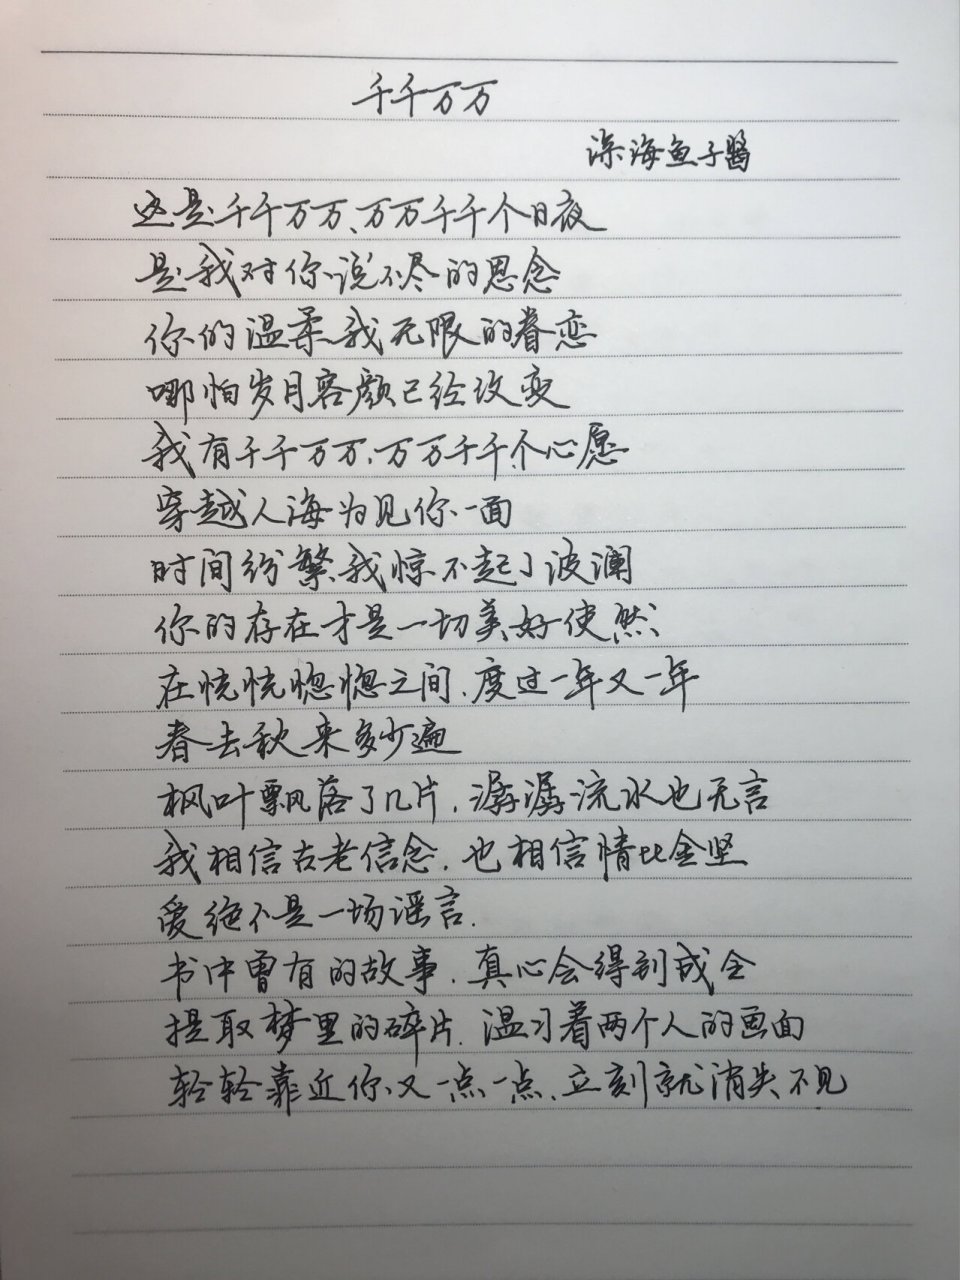 千千万万
深海鱼子醬
这是千千万万、万万千千个日夜
是我对你说不尽的思念
你的温柔我无限的眷恋
哪怕岁月容颜已经改变
我有千千万万、万万千千个心愿
穿越人海为见你一面
时间纷繁我惊不起了波澜
你的存在才是一切美好使然
在恍恍惚惚之间、度过一年又一年
春去秋来多少遍
枫叶飘落了几片，潺潺流水也无言
我相信古老信念，也相信情比金坚
爱绝不是一场谣言.
书中曾有的故事，真心会得到成全
提取梦里的碎片，温习着两个人的画面
轻轻靠近你又一点一点、立刻就消失不见